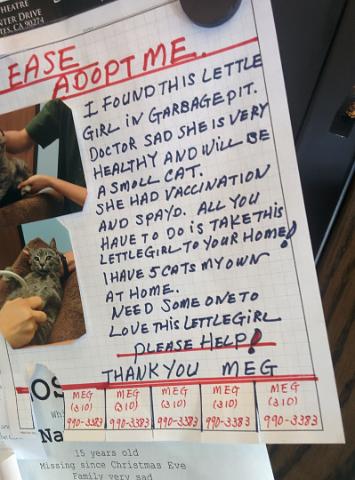 HEATRE
NTER DRIVE
TES, CA 90274
EASE
ADOPT ME..
I FOUND THIS LETTLE
GIRL IN GARBAGE PIT.
DOCTOR SAD SHE IS VERY
HEALTHY AND WILL BE
A SMOLL CAT.
SHE HAD VACCINATION
AND SPAYD. ALL YOU
HAVE TO DO IS TAKE THIS
LETTLE GIRL TO YOUR HOME!
I HAVE 5 CATS MY OWN
AT HOME.
NEED SOME ONE TO
LOVE THIS LETTLE GIRL
PLEASE HELP!
THANK YOU MEG
MEG
(310)
990-3383
MEG
(310)
990-3383
MEG
(310)
990-3383
MEG
(310)
990-3383
MEG
(310)
990-3383
OS
Whi
Na
15 years old
Missing since Christmas Eve
Family very sad